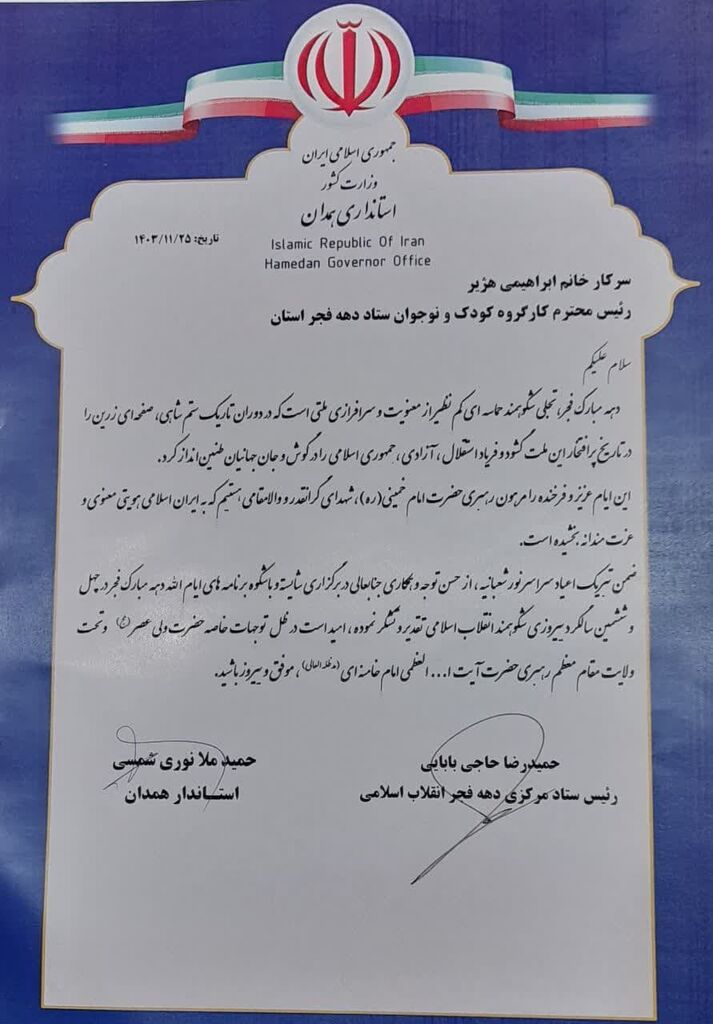 جمهوری اسلامی ایران
وزارت کشور
استانداری همدان
Islamic Republic Of Iran
Hamedan Governor Office
تاریخ: ۱۴۰۳/۱۱/۲۵
سرکار خانم ابراهیمی هژیر
رئیس محترم کارگروه کودک و نوجوان ستاد دهه فجر استان
سلام علیکم
دهه مبارک فجر، تجلی شکوهمند حماسه ای کم نظیر از معنویت و سرافرازی ملتی است که در دوران تاریک ستم شاهی، صفحه ای زرین را
در تاریخ پرافتخار این ملت گشود و فریاد استقلال، آزادی، جمهوری اسلامی را در گوش و جان جهانیان طنین انداز کرد.
این ایام عزیز و فرخنده را مرهون رهبری حضرت امام خمینی(ره)، شهدای گرانقدر و والامقامی هستیم که به ایران اسلامی هویتی معنوی و
عزت مندانه بخشیده است.
ضمن تبریک اعیاد سراسر نور شعبانیه، از حسن توجه و همکاری جنابعالی در برگزاری شایسته و باشکوه برنامه های ایام الله دهه مبارک فجر در چهل
و ششمین سالگرد پیروزی شکوهمند انقلاب اسلامی تقدیر و تشکر نموده، امید است در ظل توجهات خاصه حضرت ولی عصر (عج) و تحت
ولایت مقام معظم رهبری حضرت آیت ا... العظمی امام خامنه ای (مدظله العالی)، موفق و پیروز باشید.
حمیدرضا حاجی بابایی
رئیس ستاد مرکزی دهه فجر انقلاب اسلامی
حمید ملا نوری شمسی
استاندار همدان